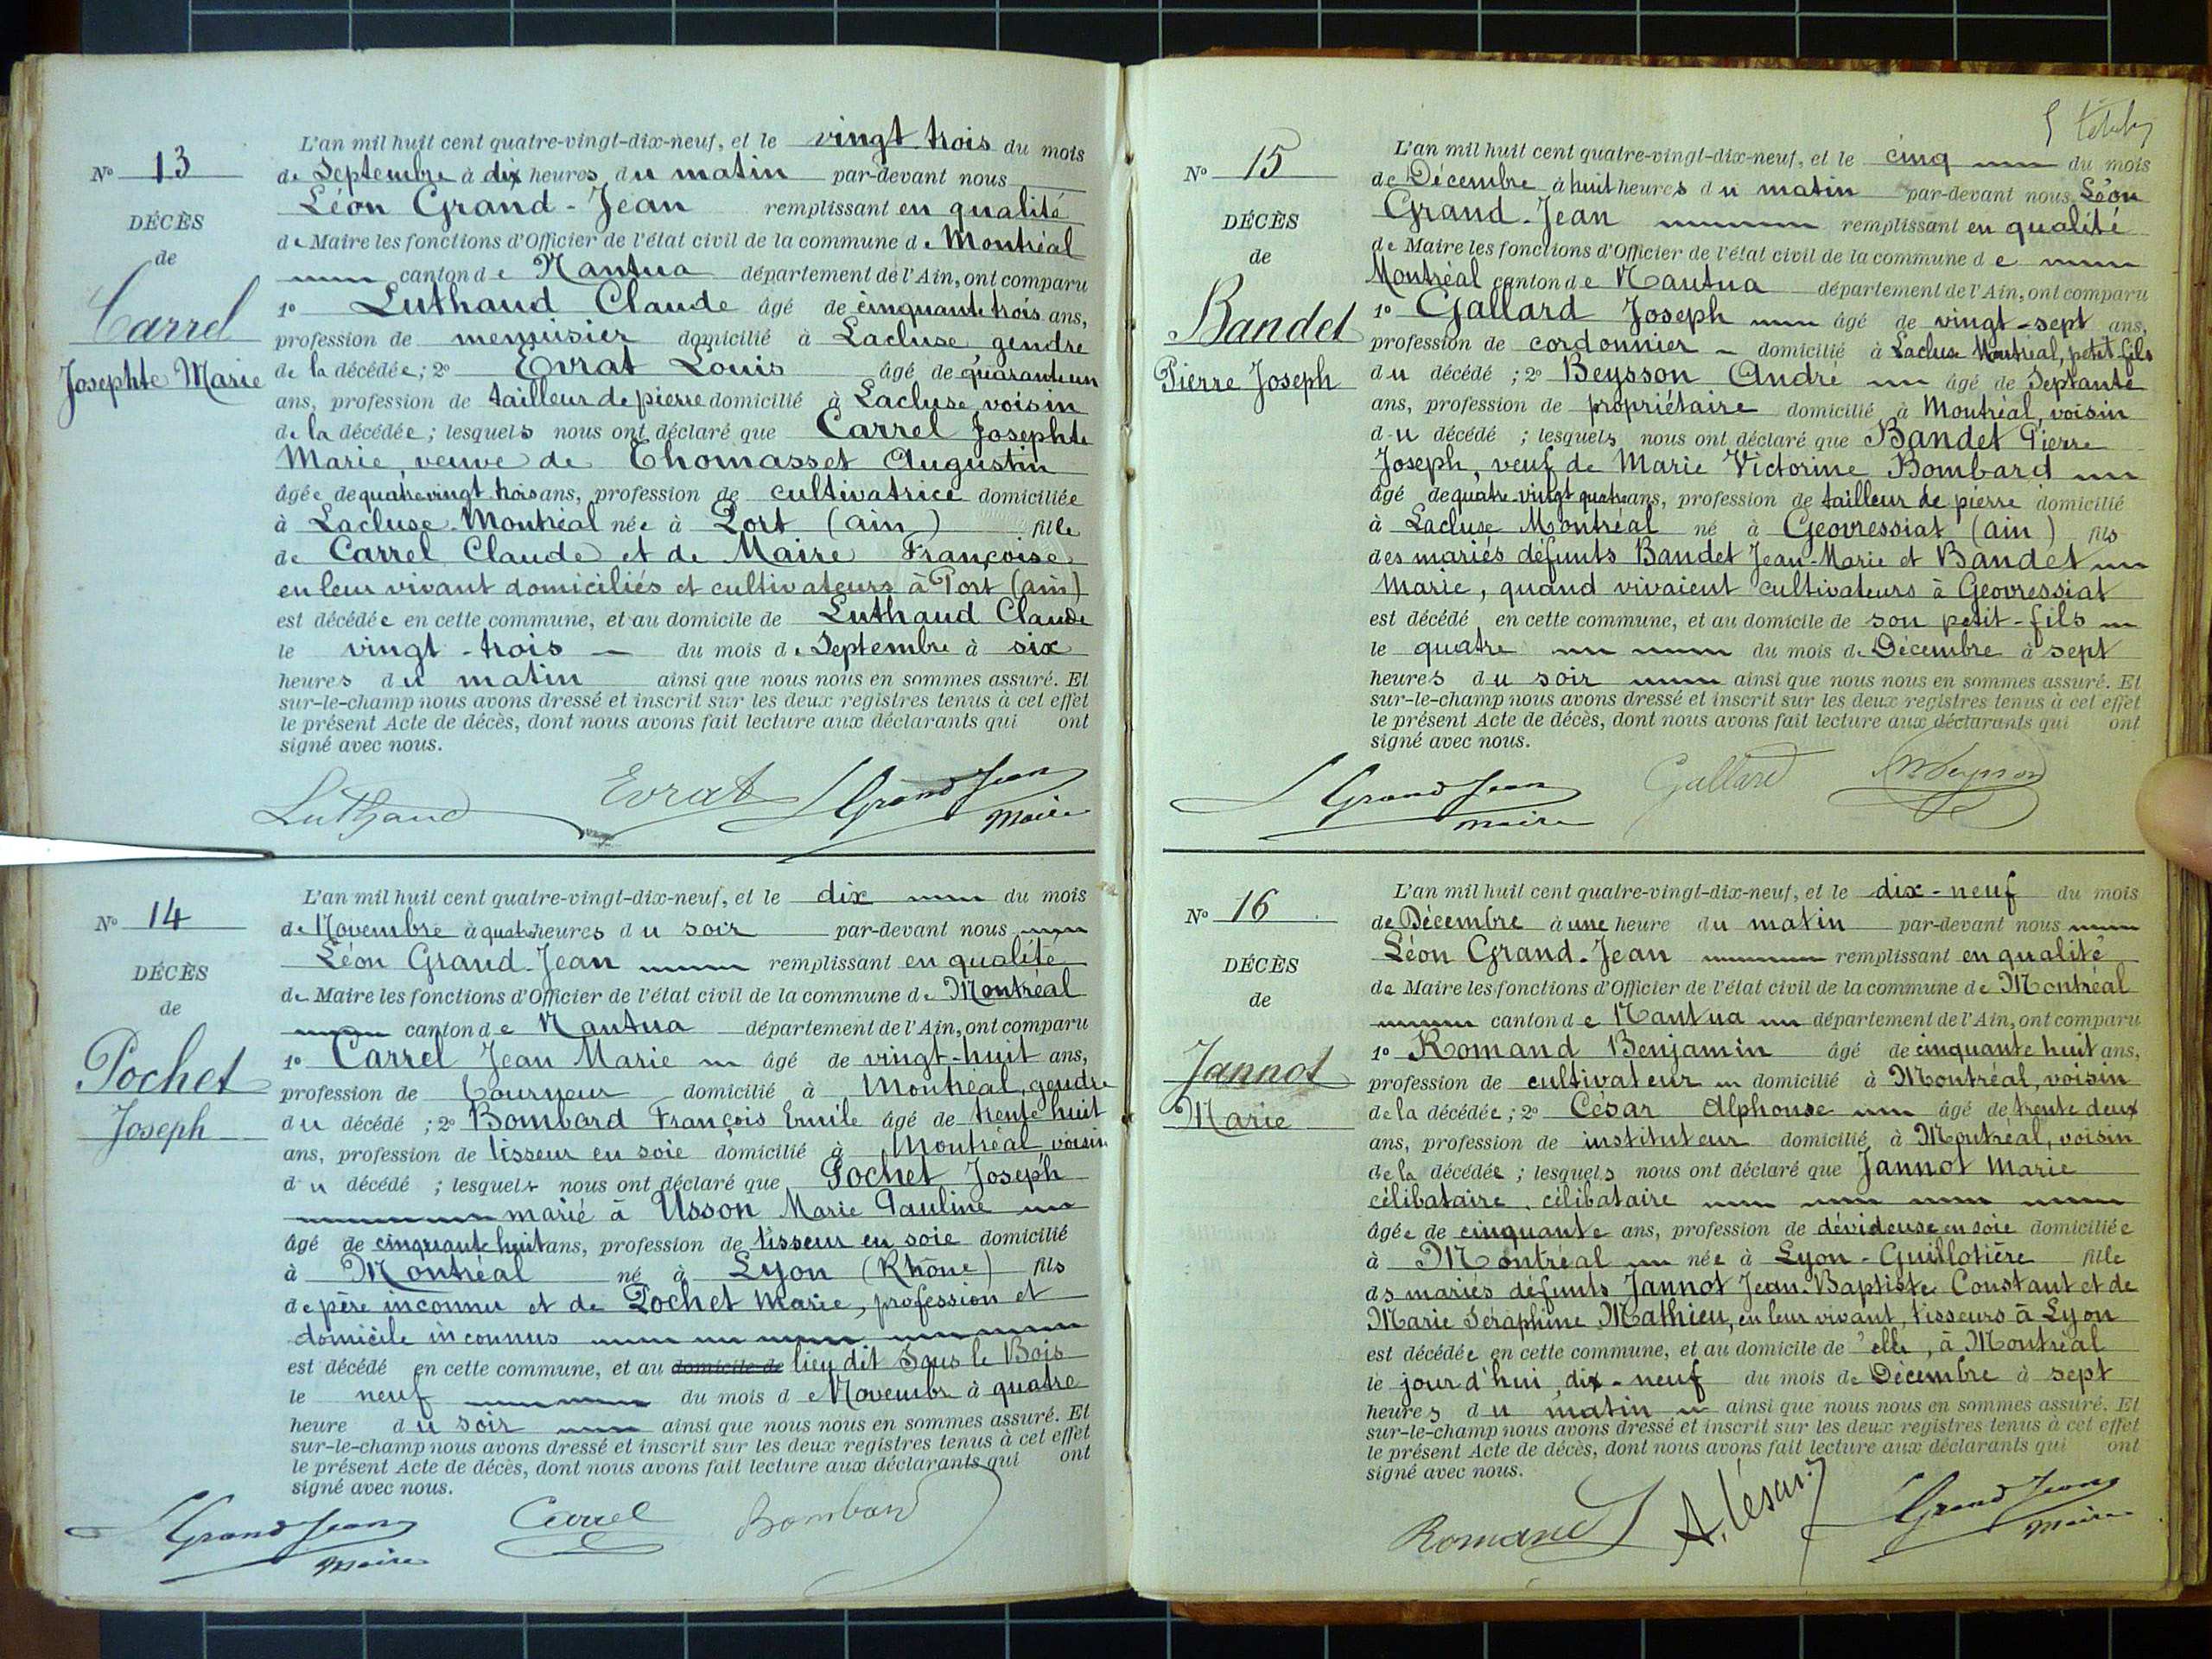 N° 13
DÉCÈS
de
Carrel
Josephte Marie
L'an mil huit cent quatre-vingt-dix-neuf, et le vingt trois du mois
de Septembre à dix heures du matin par-devant nous
Léon Grand-Jean remplissant en qualité
de Maire les fonctions d'Officier de l'état civil de la commune de Montréal
canton de Nantua département de l'Ain, ont comparu
1° Luthaud Claude âgé de cinquante trois ans,
profession de menuisier domicilié à Lacluse gendre
de la décédée; 2° Evrat Louis âgé de quarante un
ans, profession de tailleur de pierre domicilié à Lacluse voisin
de la décédée; lesquels nous ont déclaré que Carrel Josephte
Marie, veuve de Thomasset Augustin
âgée de quatre vingt trois ans, profession de cultivatrice domiciliée
à Lacluse-Montréal née à Port (ain) fille
de Carrel Claude et de Maire Françoise
en leur vivant domiciliés et cultivateurs à Port (ain)
est décédée en cette commune, et au domicile de Luthaud Claude
le vingt-trois du mois de Septembre à six
heures du matin ainsi que nous nous en sommes assuré. Et
sur-le-champ nous avons dressé et inscrit sur les deux registres tenus à cet effet
le présent Acte de décès, dont nous avons fait lecture aux déclarants qui ont
signé avec nous.
Luthaud Evrat LGrand Jean
Maire
N° 14
DÉCÈS
de
Pochet
Joseph
L'an mil huit cent quatre-vingt-dix-neuf, et le dix du mois
de Novembre à quatre heures du soir par-devant nous
Léon Grand-Jean remplissant en qualité
de Maire les fonctions d'Officier de l'état civil de la commune de Montréal
canton de Nantua département de l'Ain, ont comparu
1° Carrel Jean Marie âgé de vingt-huit ans,
profession de Tourneur domicilié à Montréal, gendre
du décédé; 2° Bombard François Emile âgé de trente huit
ans, profession de tisseur en soie domicilié à Montréal, voisin
du décédé; lesquels nous ont déclaré que Pochet Joseph
marié à Usson Marie Pauline
âgé de cinquante huit ans, profession de tisseur en soie domicilié
à Montréal né à Lyon (Rhône) fils
de père inconnu et de Pochet Marie, profession et
domicile inconnus
est décédé en cette commune, et au domicile de lieu dit Sous le Bois
le neuf du mois de Novembre à quatre
heure du soir ainsi que nous nous en sommes assuré. Et
sur-le-champ nous avons dressé et inscrit sur les deux registres tenus à cet effet
le présent Acte de décès, dont nous avons fait lecture aux déclarants qui ont
signé avec nous.
LGrand Jean Carrel Bombard
Maire
N° 15
DÉCÈS
de
Bandet
Pierre Joseph
L'an mil huit cent quatre-vingt-dix-neuf, et le cinq du mois
de Décembre à huit heures du matin par-devant nous Léon
Grand-Jean remplissant en qualité
de Maire les fonctions d'Officier de l'état civil de la commune de
Montréal canton de Nantua département de l'Ain, ont comparu
1° Gallard Joseph âgé de vingt-sept ans,
profession de cordonnier domicilié à Lacluse Montréal, petit-fils
du décédé; 2° Beysson André âgé de Septante
ans, profession de propriétaire domicilié à Montréal, voisin
du décédé; lesquels nous ont déclaré que Bandet Pierre
Joseph, veuf de Marie Victorine Bombard
âgé de quatre-vingt quatre ans, profession de tailleur de pierre domicilié
à Lacluse Montréal né à Geovressiat (ain) fils
des mariés défunts Bandet Jean-Marie et Bandet
Marie, quand vivaient cultivateurs à Geovressiat
est décédé en cette commune, et au domicile de son petit-fils
le quatre du mois de Décembre à sept
heures du soir ainsi que nous nous en sommes assuré. Et
sur-le-champ nous avons dressé et inscrit sur les deux registres tenus à cet effet
le présent Acte de décès, dont nous avons fait lecture aux déclarants qui ont
signé avec nous.
LGrand Jean Gallard
maire
N° 16
DÉCÈS
de
Jannot
Marie
L'an mil huit cent quatre-vingt-dix-neuf, et le dix-neuf du mois
de Décembre à une heure du matin par-devant nous
Léon Grand-Jean remplissant en qualité
de Maire les fonctions d'Officier de l'état civil de la commune de Montréal
canton de Nantua département de l'Ain, ont comparu
1° Romand Benjamin âgé de cinquante huit ans,
profession de cultivateur domicilié à Montréal, voisin
de la décédée; 2° César Alphonse âgé de trente deux
ans, profession de instituteur domicilié à Montréal, voisin
de la décédée; lesquels nous ont déclaré que Jannot Marie
célibataire, célibataire
âgée de cinquante ans, profession de dévideuse en soie domiciliée
à Montréal née à Lyon-Guillotière fille
ds mariés défunts Jannot Jean-Baptiste Constant et de
Marie Séraphine Mathieu, en leur vivant, tisseurs à Lyon
est décédée en cette commune, et au domicile de elle, à Montréal
le jourd'hui, dix-neuf du mois de Décembre à sept
heures du matin ainsi que nous nous en sommes assuré. Et
sur-le-champ nous avons dressé et inscrit sur les deux registres tenus à cet effet
le présent Acte de décès, dont nous avons fait lecture aux déclarants qui ont
signé avec nous.
Romand A. César LGrand Jean
Maire